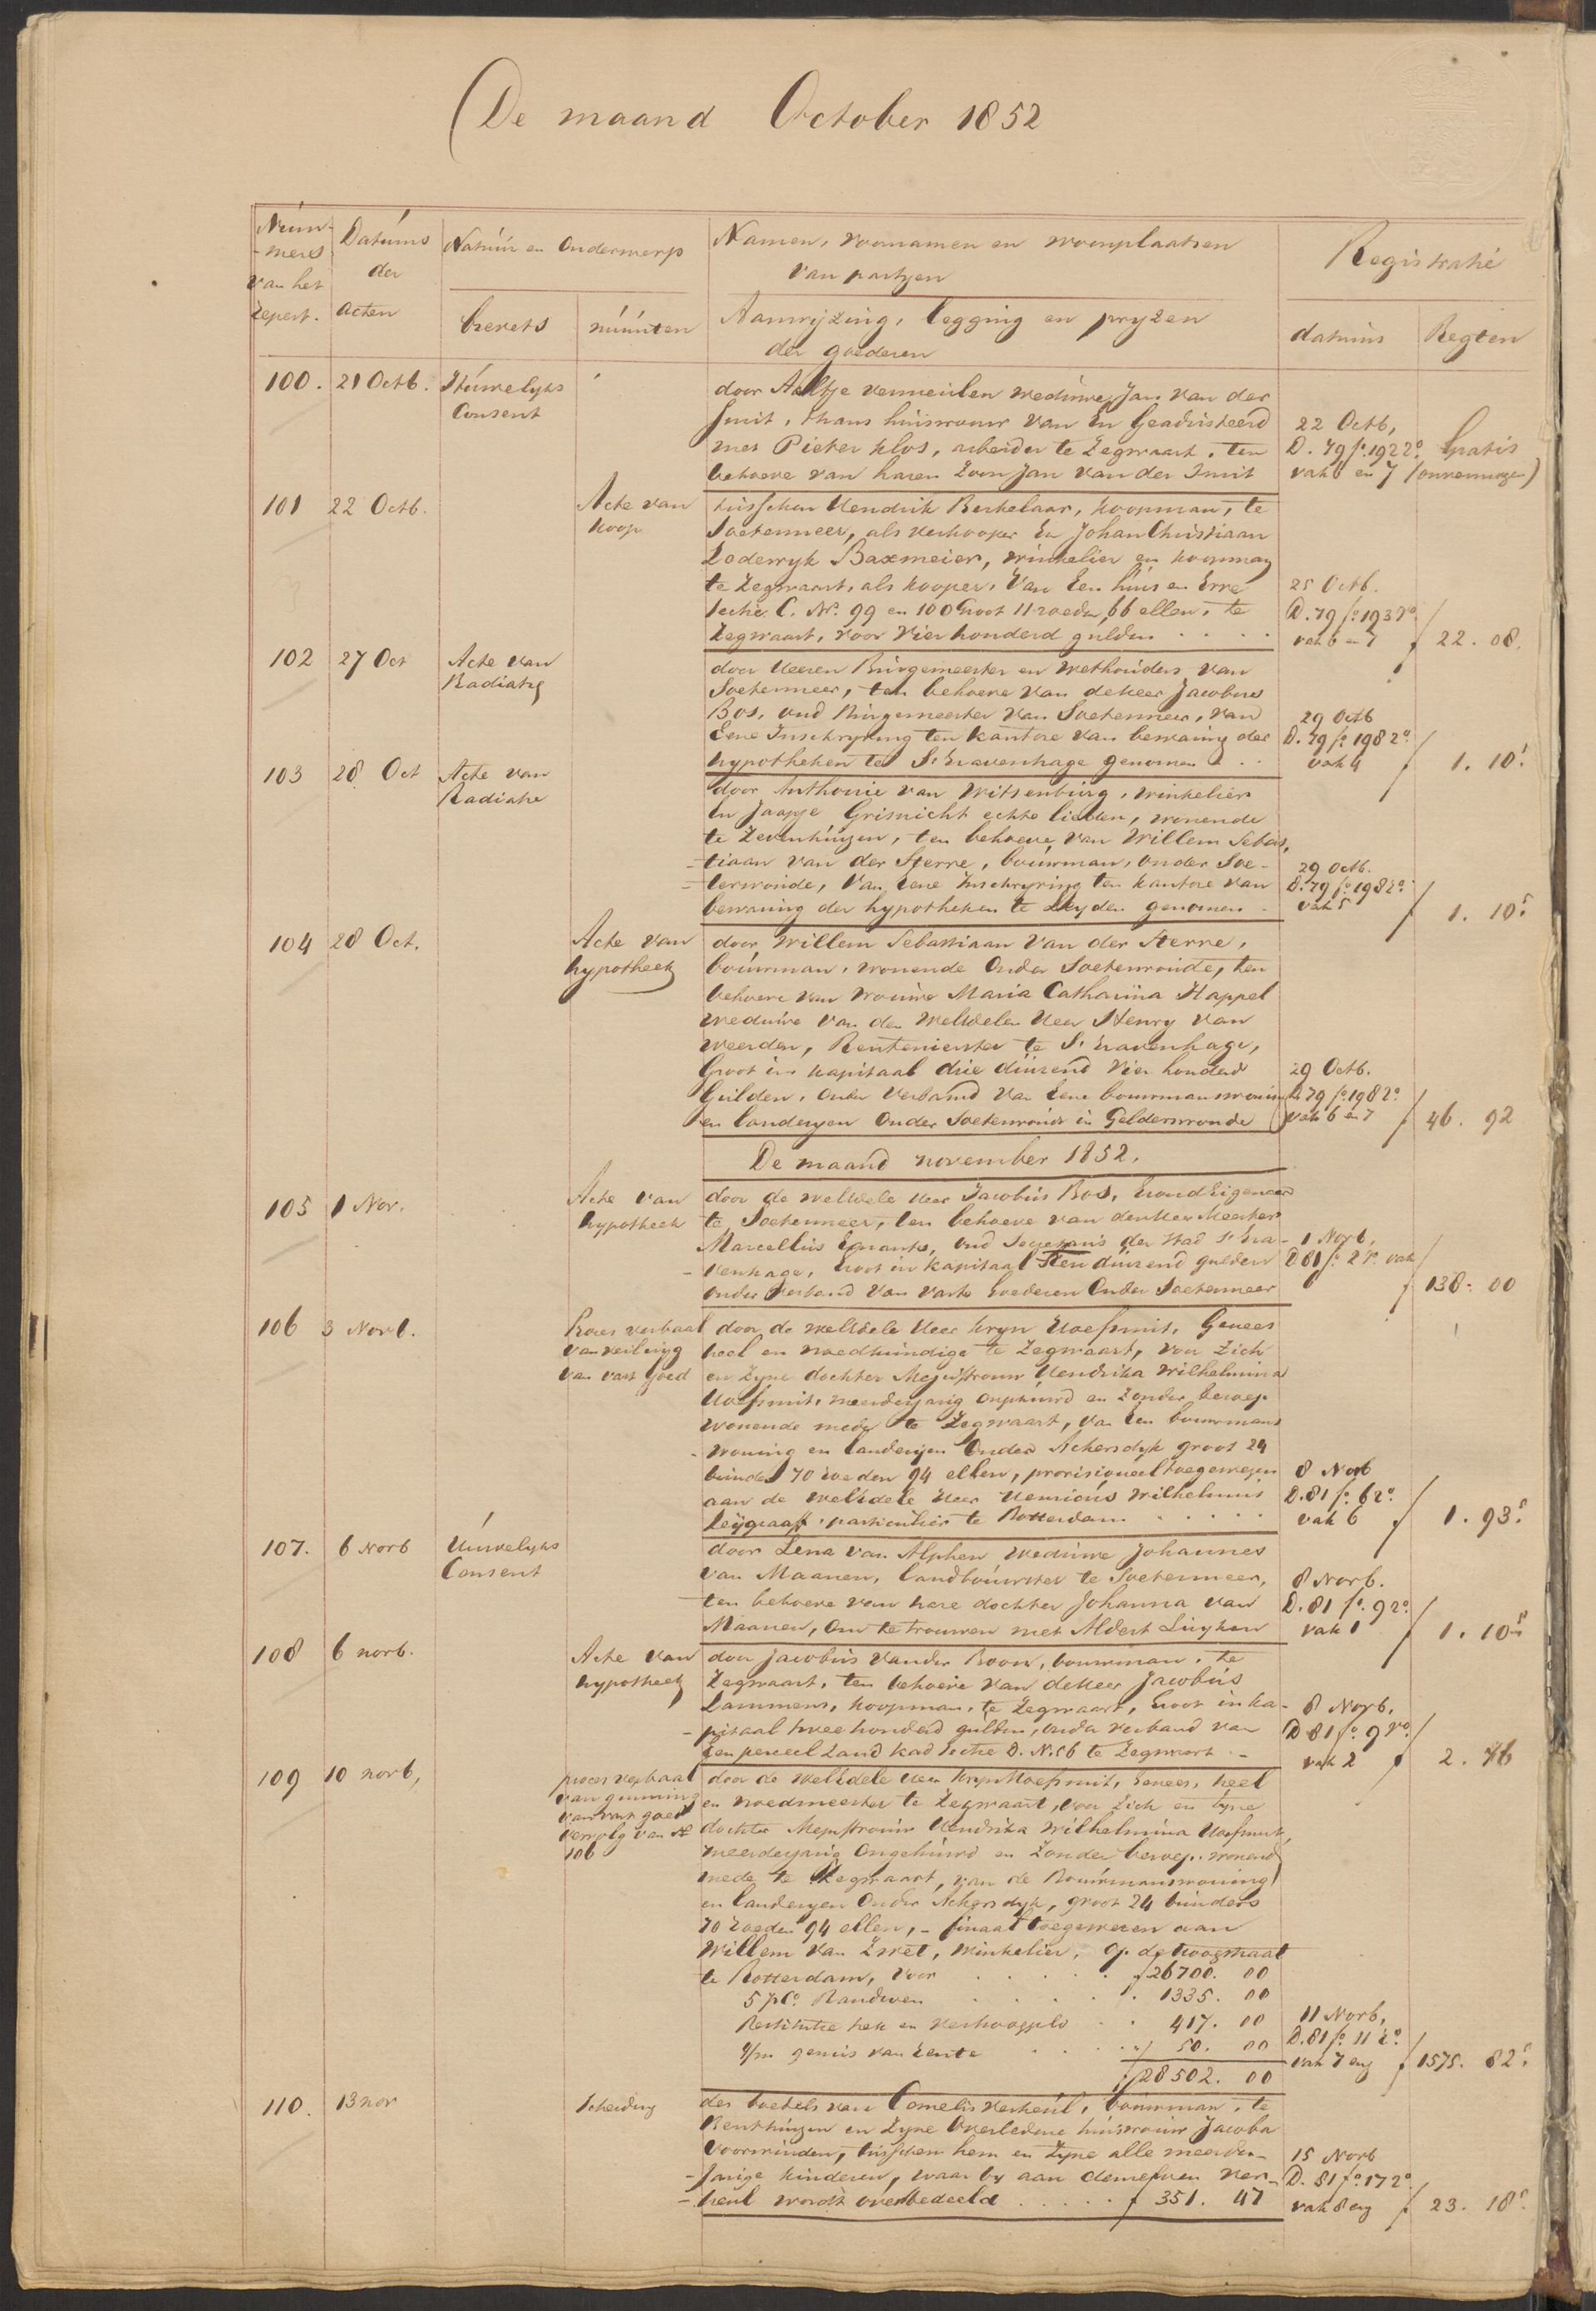 De maand October 1852
Num-
-mers
van het
Repert.
Datums
der
acten
Natuur en Onderwerp
brevets
minuten
Namen, voornamen en woonplaatsen
van partyen
Aanwyzing, legging en pryzen
der goederen
Registratie
datums
Regten
100. 21 Octb.
Huwelyks
Consent
door Aaltje Vermeulen weduwe Jan van der
Smit, thans huisvrouw van en Geadsisteerd
met Pieter Klos, arbeider te Zegwaart, ten
behoeve van haren Zoon Jan van der Smit
22 Octb,
D. 79 fo. 192 2o.
vak 6 en 7
Gratis
(onvermogen)
101 22 Octb.
Acte van
koop
tusschen Hendrik Berkelaar, koopman, te
Soetermeer, als verkooper En Johan Christiaan
Lodewyk Baxmeier, winkelier en koopman
te Zegwaart, als kooper, Van Een huis en Erve
Sectie C. No. 99 en 100 Groot 11 roeden, 66 ellen, te
Zegwaart, voor Vier honderd gulden . . . .
25 Octb.
D. 79 fo. 193 vo.
vak 6 en 7
f 22. 08.
102 27 Oct
Acte van
Radiatie
door Heeren Burgemeester en Wethouders van
Soetermeer, ten behoeve van de Heer Jacobus
Bos, oud Burgemeester van Soetermeer, van
Eene Inschryving ten kantore van bewaring der
hypotheken te S'Gravenhage genomen . .
29 Octb
D. 79 fo. 198 2o.
vak 4
f 1. 10 5.
103 28 Oct
Acte van
Radiatie
door Anthonie van Witsenburg, winkelier
En Jaapje Grisnicht echte lieden, wonende
te Zevenhuizen, ten behoeve van Willem Sebas,
-tiaan van der Sterre, bouwman, onder Soe-
-terwoude, Van Eene Inschryving ten kantore van
bewaring der hypotheken te Leyden genomen .
29 Octb.
D. 79 fo. 198 2o.
vak 5
f 1. 10 5.
104 28 Oct.
Acte van
hypotheek
door Willem Sebastiaan van der Sterre,
bouwman, wonende Onder Soeterwoude, ten
behoeve van Vrouwe Maria Catharina Happel
weduwe van den WelEdelen Heer Henry van
Weerden, Rentenierster te S'Gravenhage,
Groot in kapitaal drie duizend Vier honderd
Gulden, onder Verband van Eene bouwmanswoning
en landeryen Onder Soeterwoude in Gelderswoude
29 Octb.
D. 79 fo. 198 2o.
vak 6 en 7
f 46. 92
De maand november 1852.
105 1 Nov.
Acte van
hypotheek
door de WelEdele Heer Jacobus Bos, GrondEigenaar
te Soetermeer, ten behoeve van den Heer Meester
Marcellus Emants, oud Secretaris der Stad S'Gra-
-venhage, Groot in kapitaal Tien duizend gulden
onder Verband van Vaste Goederen Onder Soetermeer
1 Novb,
D 81 fo. 2 ro. vak
6
f 138. 00
106 3 Novb.
Proces verbaal
van veiling
van vast Goed
door de WelEdele Heer Kryn Hoefsmit, Genees
heel en vroedkundige te Zegwaart, voor Zich
en Zyne dochter Mejuffrouw Hendrika Wilhelmina
Hoefsmit, meerderjarig Ongehuwd en Zonder beroep
wonende mede te Zegwaart, van Een bouwmans
-woning en landeryen Onder Ackersdyk groot 24
bunders 70 roeden 94 ellen, provisioneel toegewezen
aan de WelEdele Heer Henricus Wilhelmus
Leygraaff, particulier te Rotterdam . . . . .
8 Novb
D. 81 fo. 6 2o.
vak 6
f 1. 93 5.
107. 6 Novb
Huwelyks
Consent
door Lena van Alphen weduwe Johannes
van Maanen, landbouwster te Soetermeer,
ten behoeve van hare dochter Johanna van
Maanen, om te trouwen met Aldert Luyken
8 Novb.
D. 81 fo. 9 2o.
vak 1
f 1. 10 5
108 6 novb.
Acte van
hypotheek
door Jacobus vander Boon, bouwman, te
Zegwaart, ten behoeve van de Heer Jacobus
Lammens, koopman, te Zegwaart, Groot in ka-
-pitaal twee honderd gulden, onder verband van
Een perceel Land kad Sectie D. N. 56 te Zegwaart . -
8 Novb.
D 81 fo. 9 vo.
vak 2
f 2. 76
109 10 novb,
proces verbaal
van gunning
van vast goed
vervolg van No
106
door de WelEdele Heer Kryn Hoefsmit, Genees, heel
en vroedmeester te Zegwaart, voor Zich en Zyne
dochter Mejuffrouw Hendrika Wilhelmina Hoefsmit,
meerderjarig Ongehuwd en Zonder beroep wonend
mede te Zegwaart, van de Bouwmanswoning
en landeryen Onder Ackersdyk, groot 24 bunders
70 roeden 94 ellen, - finaal toegewezen aan
Willem van Zwet, winkelier, op de Hoogstraat
te Rotterdam, voor . . . . . f 26700. 00
5 pCo. Randsoen . . . . . 1335. 00
Restitutie hek en Verhooggeld . . 417. 00
9/m genus van Rente . . . . f 50. 00
f 28502. 00
11 Novb,
D. 81 fo. 11 2o.
vak 7 env
f 1575. 82 5.
110. 13 nov
Scheiding
des boedels van Cornelis Verheul, bouwman, te
Benthuizen en Zyne Overledene huisvrouw Jacoba
Voorwinden, tusschen hem en Zyne alle meerder-
-jarige kinderen, waar by aan denzelven Ver-
-heul wordt overbedeeld . . . . . f 351. 47
15 Novb
D. 81 fo. 17 2o.
vak 8 env
f 23. 18 5.